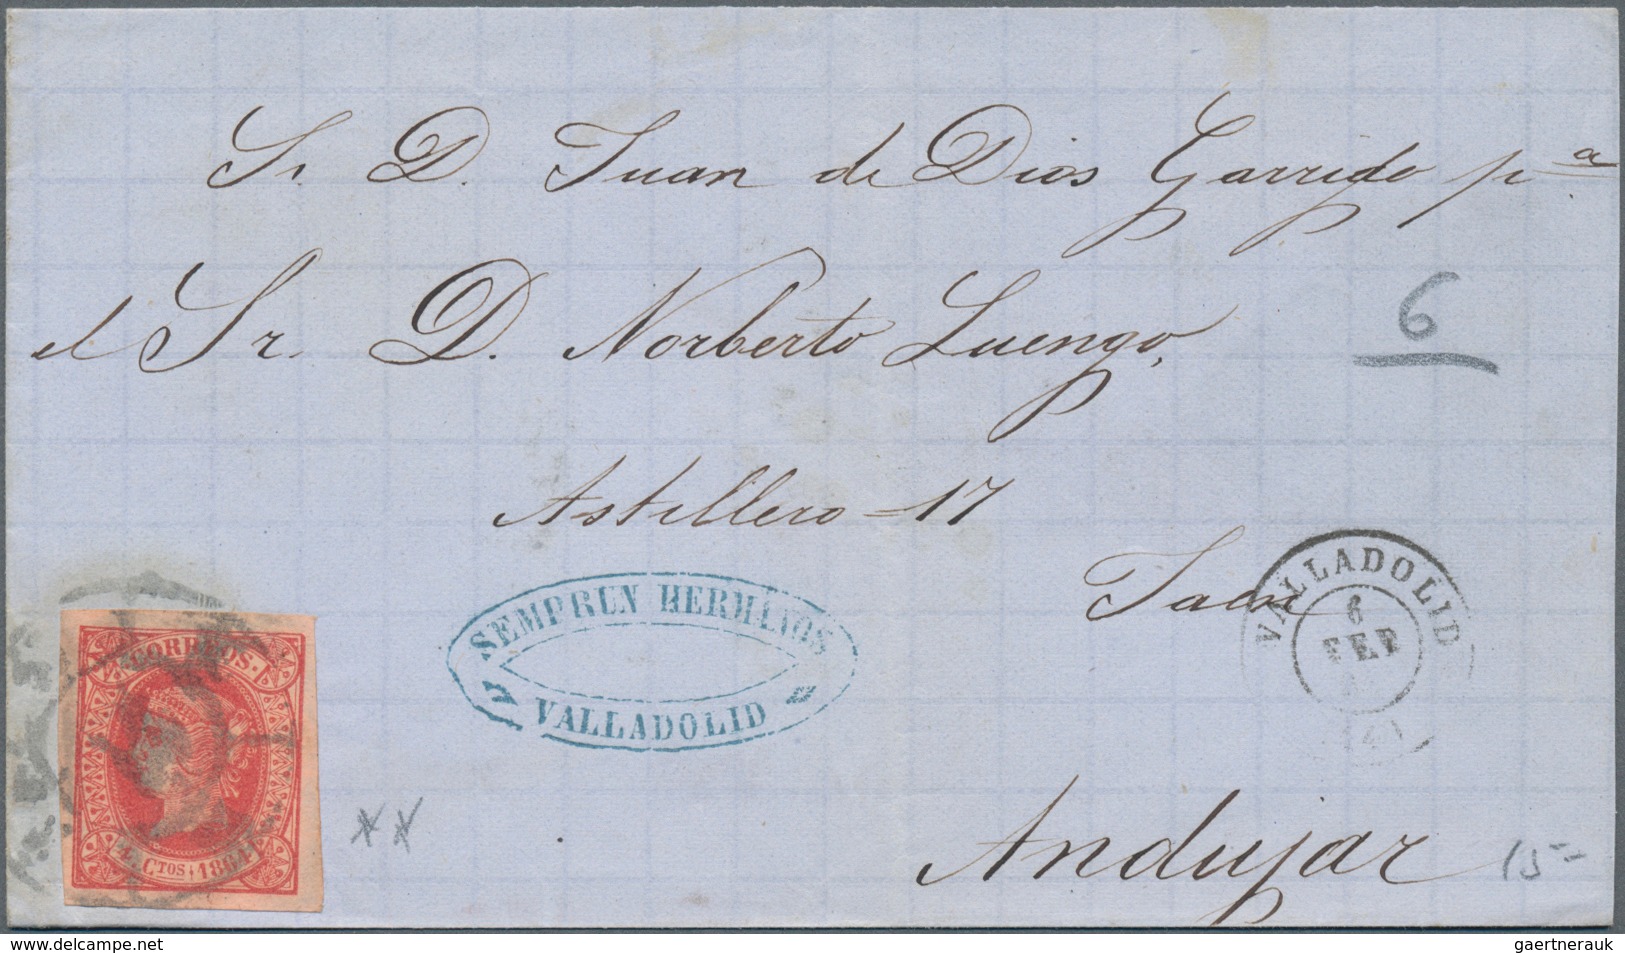 Sr. D. Juan de Dios Garrido pa
el Sr. D. Norberto Luengo,
6
Astillero = 17
Jaen
VALLADOLID
6
FEB
SEMPRUN HERMANOS
VALLADOLID
CORREOS.
4 CTOS 1864
Andujar
15--
www.delcampe.net
gaertnerauk